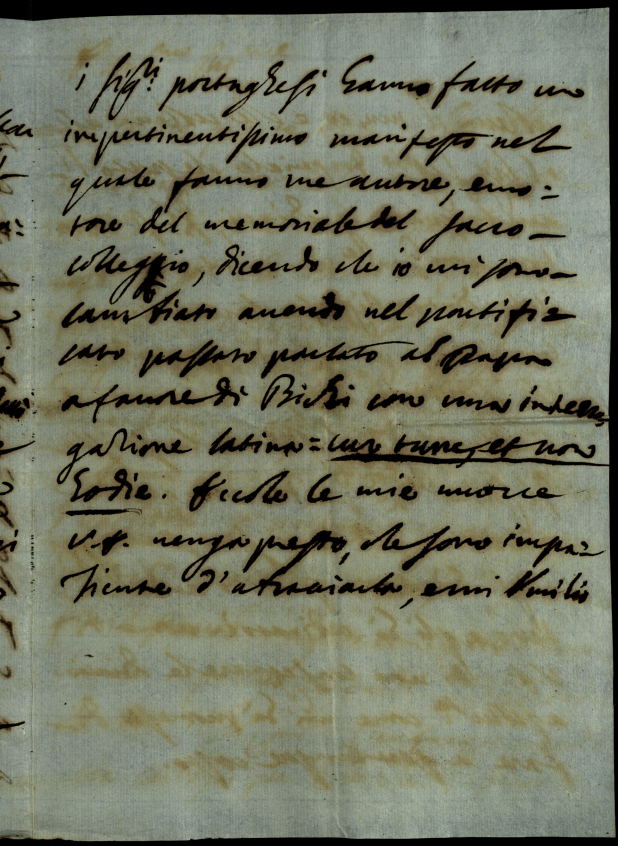 i sig.ri portughesi hanno fatto un
impertinentissimo manifesto nel
quale fanno me autore, e mo=
tore del memoriale del sacro
colleggio, dicendo che io mi sono
cambiato avendo nel pontifi=
cato passato parlato al Papa
a favore di Bichi con una interro
gazione latina = cur tunc, et non
hodie. Eccole le mie nuove
V.S. venga presto, che sono impa=
ziente d'abraciarla, e mi umilio